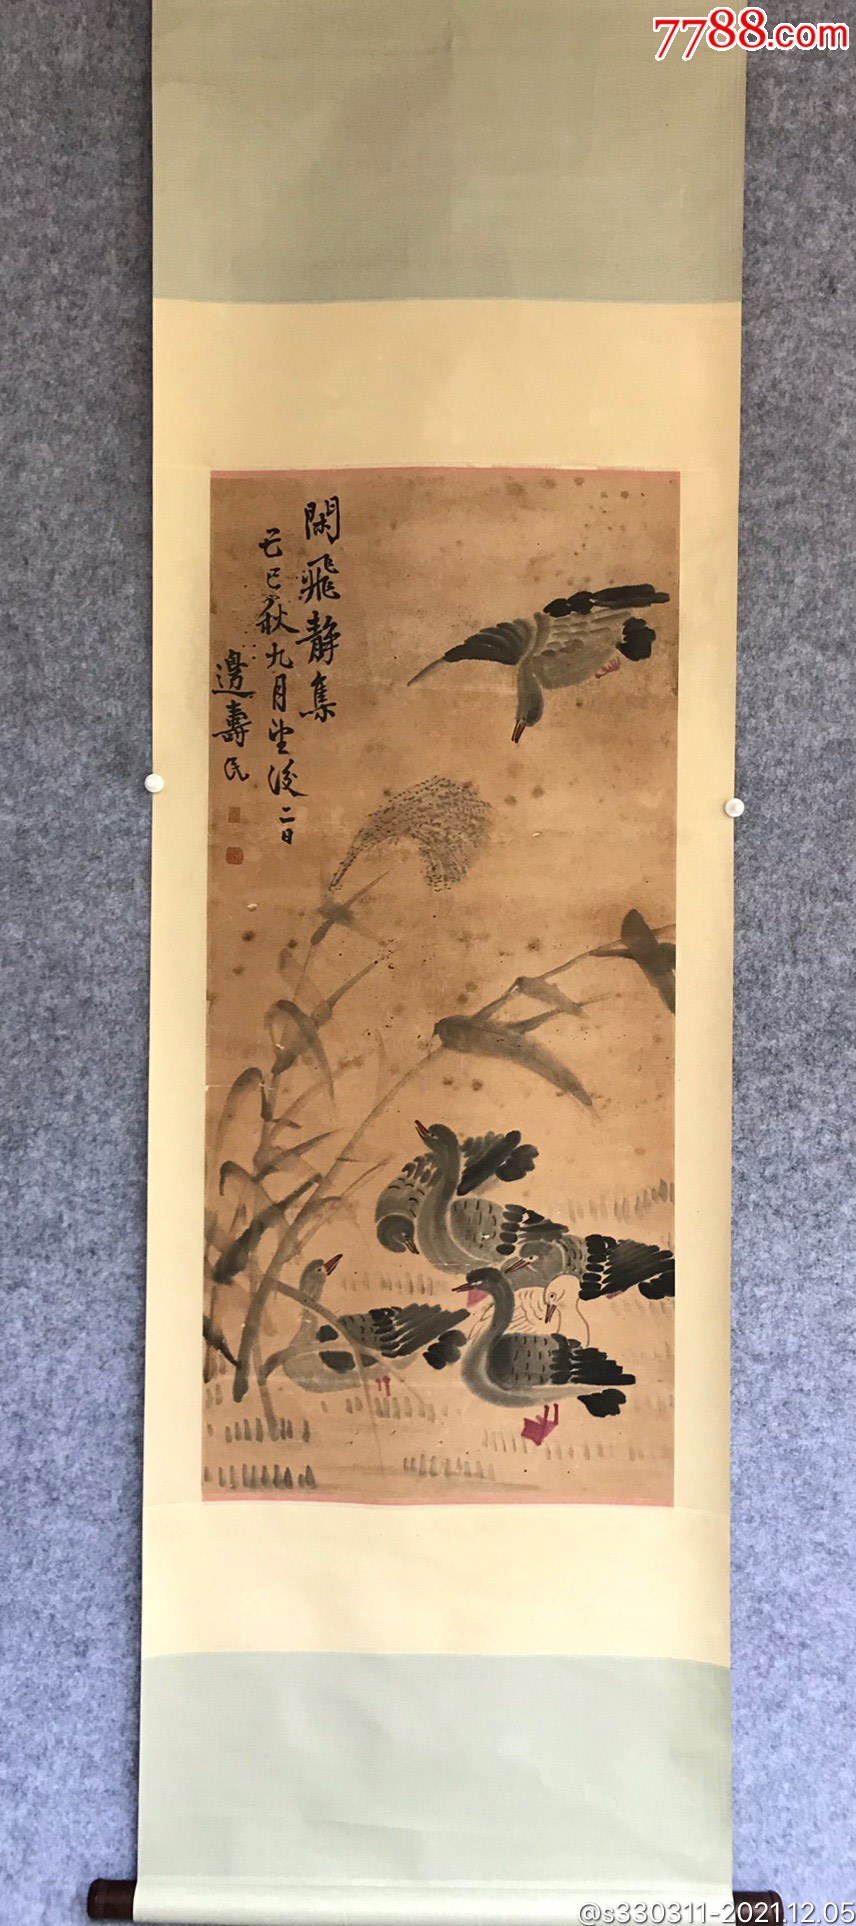 7788.com
閑飛靜集
己巳秋九月望後二日
邊壽民
@s330311-2021.12.05